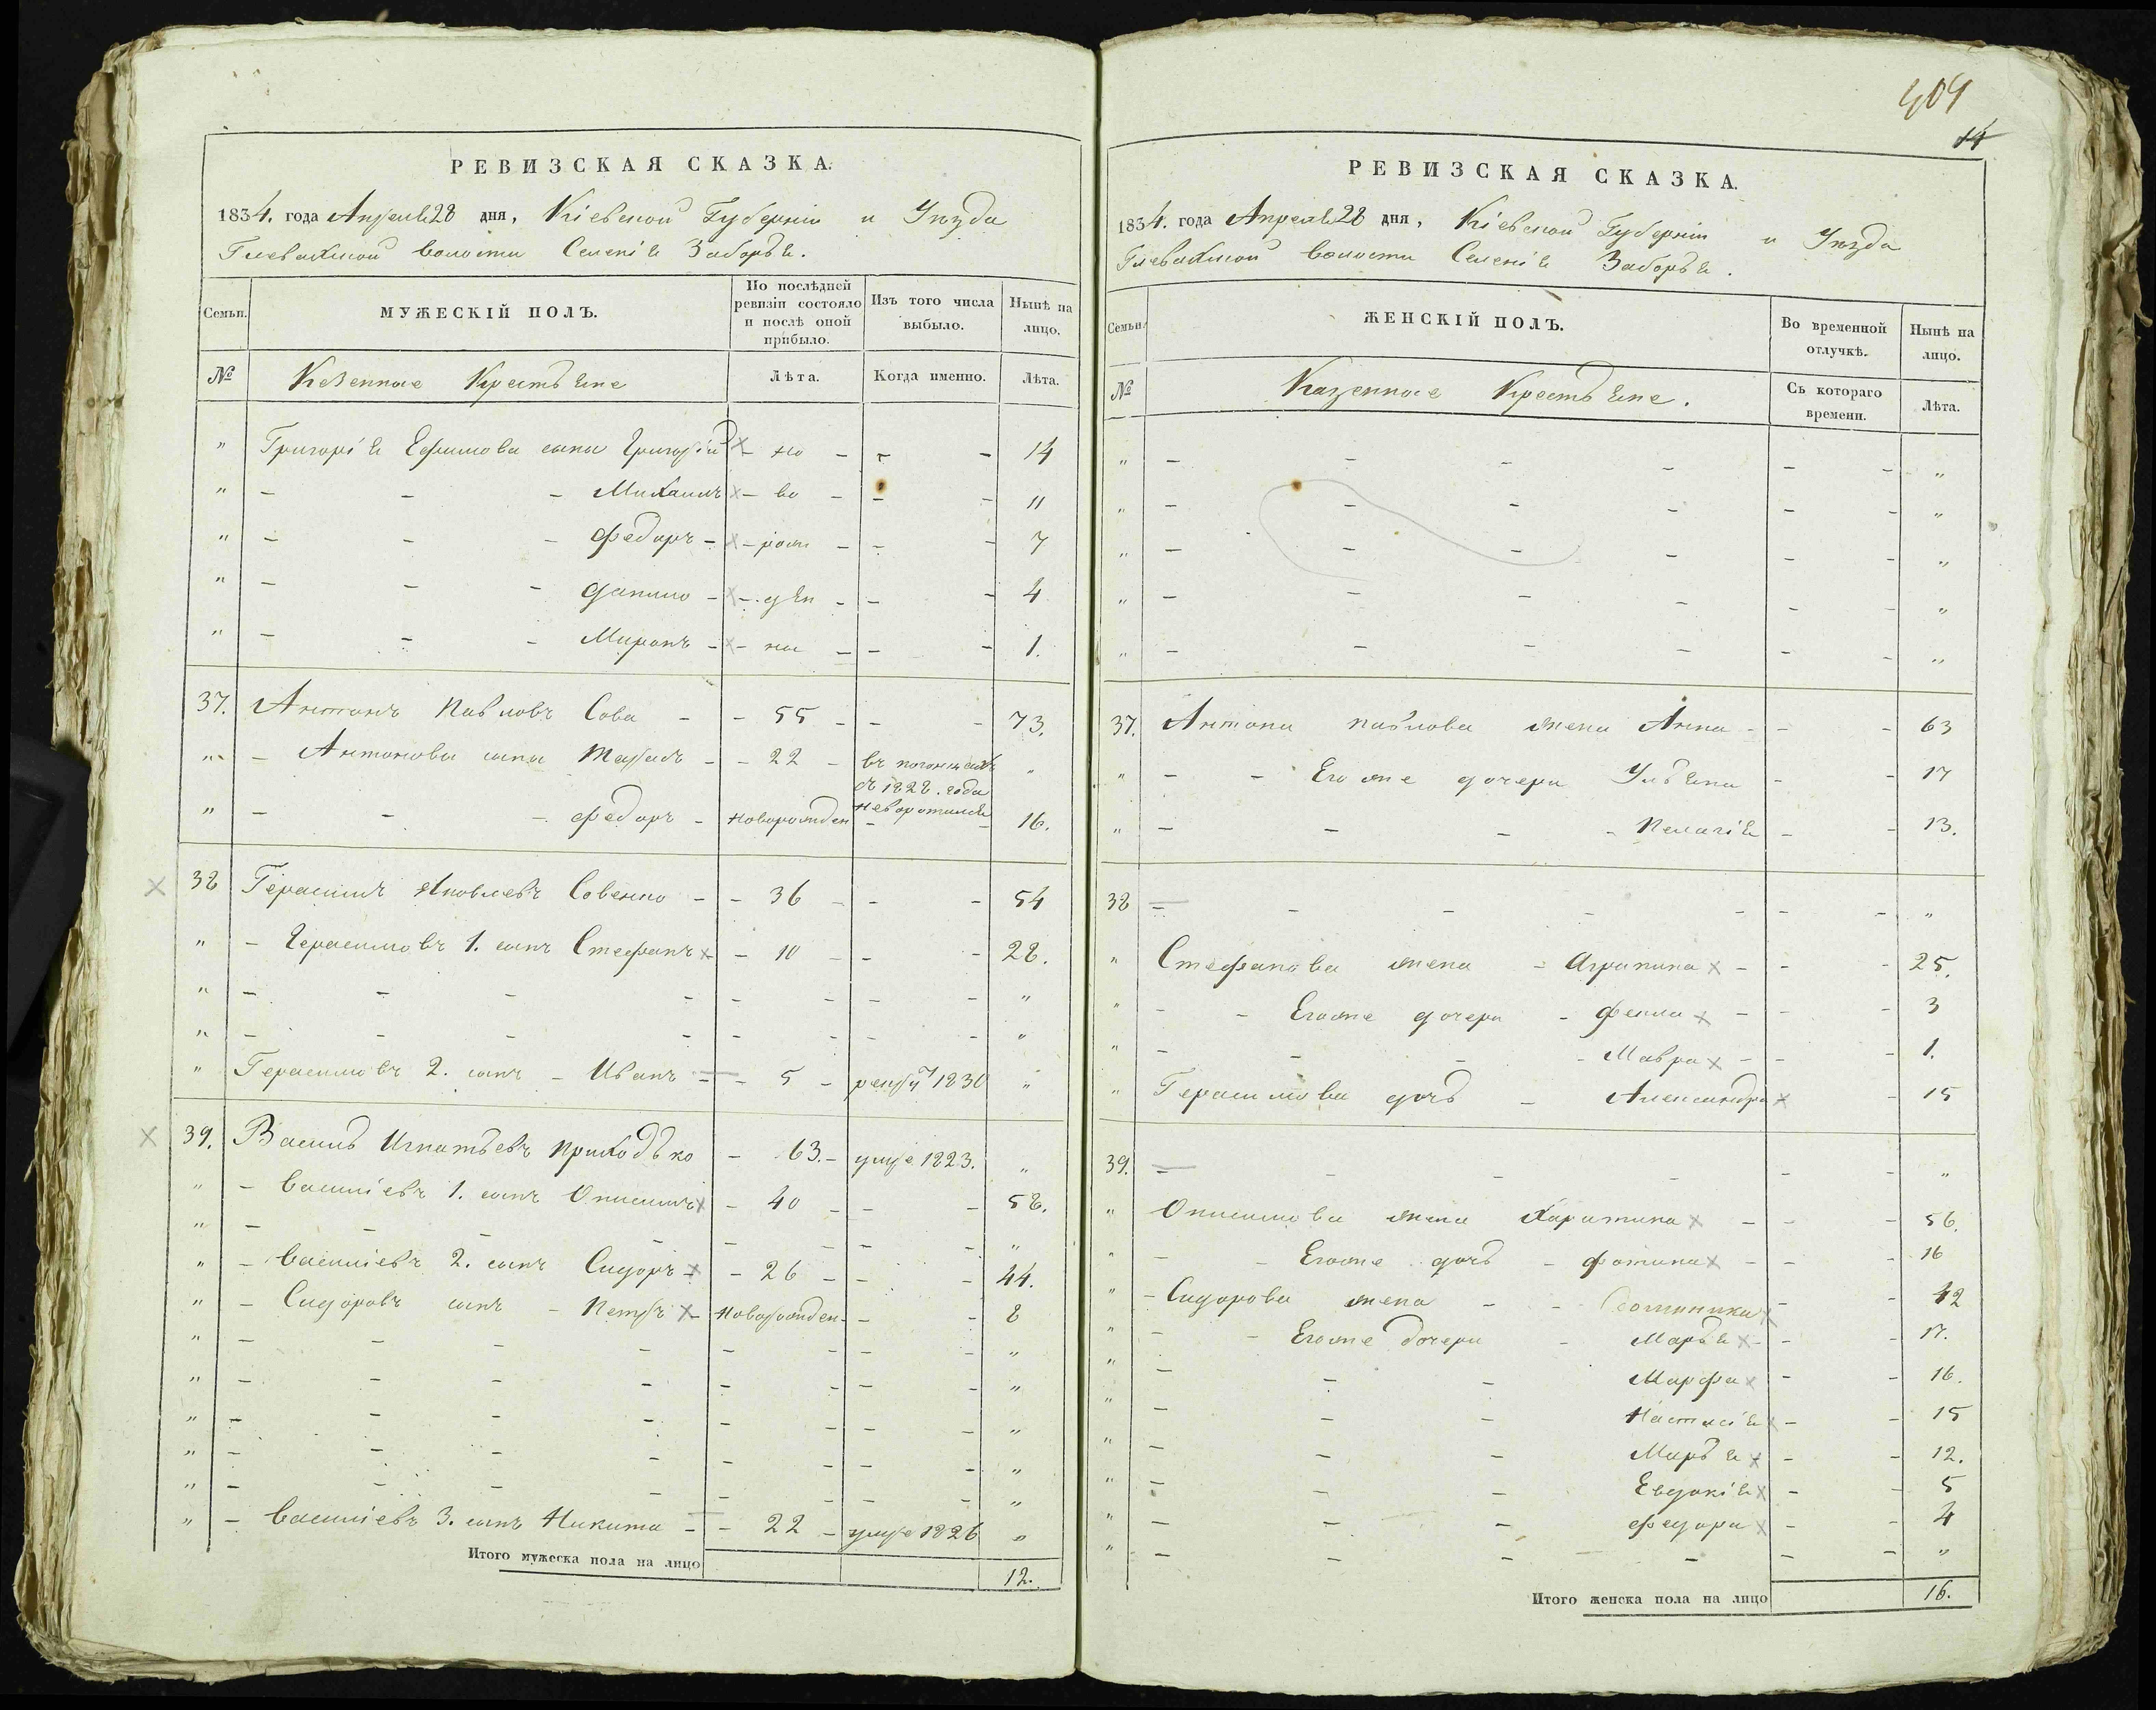 РЕВИЗСКАЯ СКАЗКА.
1834. года Апреля 28 дня, Кіевской Губерніи и Уѣзда
Глевахской волости Селенія Заборья.
Семьи. МУЖЕСКІЙ ПОЛЪ. По послѣдней ревизіи состояло и послѣ оной прибыло. Изъ того числа выбыло. Нынѣ на лицо.
№ Казенные Крестьяне Лѣта. Когда именно. Лѣта.
" Григорія Ефимова сыны Григорій × - но - - - 14
" - - - Михаилъ × - во - - - 11
" - - - Федоръ - × - рож - - - 7
" - - - Данило - × - ден - - - 4
" - - - Миронъ - × - ны - - - 1.
37. Антонъ Павловъ Сова - - 55 - - - 73.
" - Антоновы сыны Тарасъ - - 22 - въ погонцахъ "
съ 1828. года
неворотился
" - - - Федоръ - новорожден - - 16.
× 38 Герасимъ Яковлевъ Совенко - - 36 - - - 54
" - Герасимовъ 1. сынъ Стефанъ × - 10 - - - 28.
" - - - - - - - - "
" - - - - - - - - "
" Герасимовъ 2. сынъ - Иванъ - - 5 - рекрут 1830 "
× 39. Василь Игнатьевъ Приходько - 63. - умре 1823. "
" - Василіевъ 1. сынъ Онисимъ × - 40 - - - 58.
" - - - - - - - - "
" - Василіевъ 2. сынъ Сидоръ × - 26 - - - 44.
" - Сидоровъ сынъ - Петръ × - новорожден - - - 8
" - - - - - - - - "
" - - - - - - - - "
" - - - - - - - - "
" - - - - - - - - "
" - - - - - - - - "
" - Василіевъ 3. сынъ Никита - - 22 - умре 1826 "
Итого мужеска пола на лицо 12.
404
14
РЕВИЗСКАЯ СКАЗКА.
1834. года Апреля 28 дня, Кіевской Губерніи и Уѣзда
Глевахской волости Селенія Заборья.
Семьи. ЖЕНСКІЙ ПОЛЪ. Во временной отлучкѣ. Нынѣ на лицо.
№ Казенные Крестьяне. Съ котораго времени. Лѣта.
" - - - - - - "
" - - - - - - "
" - - - - - - "
" - - - - - - "
" - - - - - - "
37. Антона Павлова жена Анна - - - 63
" - - Его же дочери Ульяна - - 17
" - - - - Пелагія - - 13.
38 - - - - - - - "
" Стефанова жена - Агрипина × - - - 25.
" - - Его же дочери - Фекла × - - - 3
" - - - - Мавра × - - - 1.
" Герасимова дочь - Александра × - 15
39. - - - - - - "
" Онисимова жена Харитина × - - - 56.
" - - Его же дочь - Фотина × - - - 16
" - Сидорова жена - - × - - 42
" - - Его же дочери - Марья × - - - 17.
" - - - Марфа × - - 16.
" - - - Настасія × - - 15
" - - - Марья × - - 12.
" - - - Евдокія × - - 5
" - - - Федора × - - 4
" - - - - - - "
Итого женска пола на лицо 16.